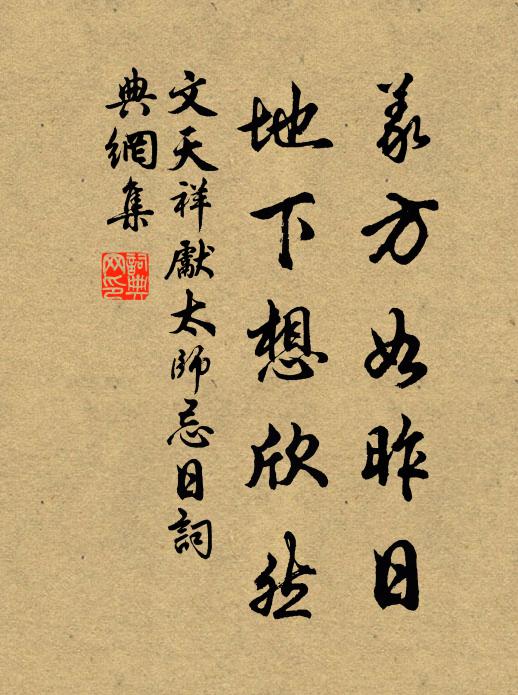 義方如昨日
地下想欣然
文天祥獻太師忌日詞
典網集
詞典網印